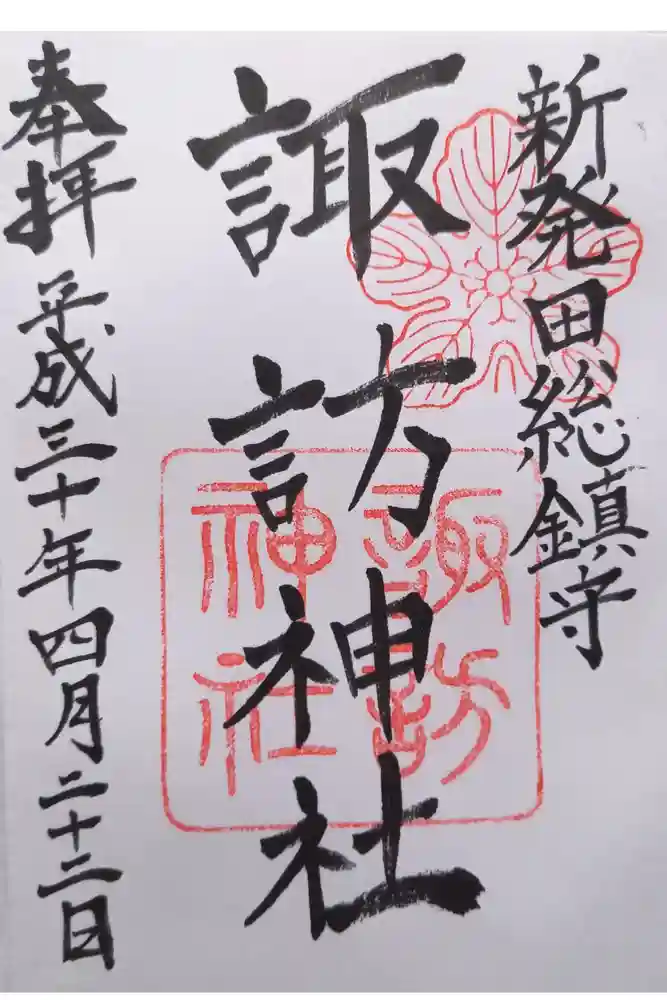 新発田総鎮守
諏訪神社
諏訪
神社
奉拝 平成三十年四月二十二日